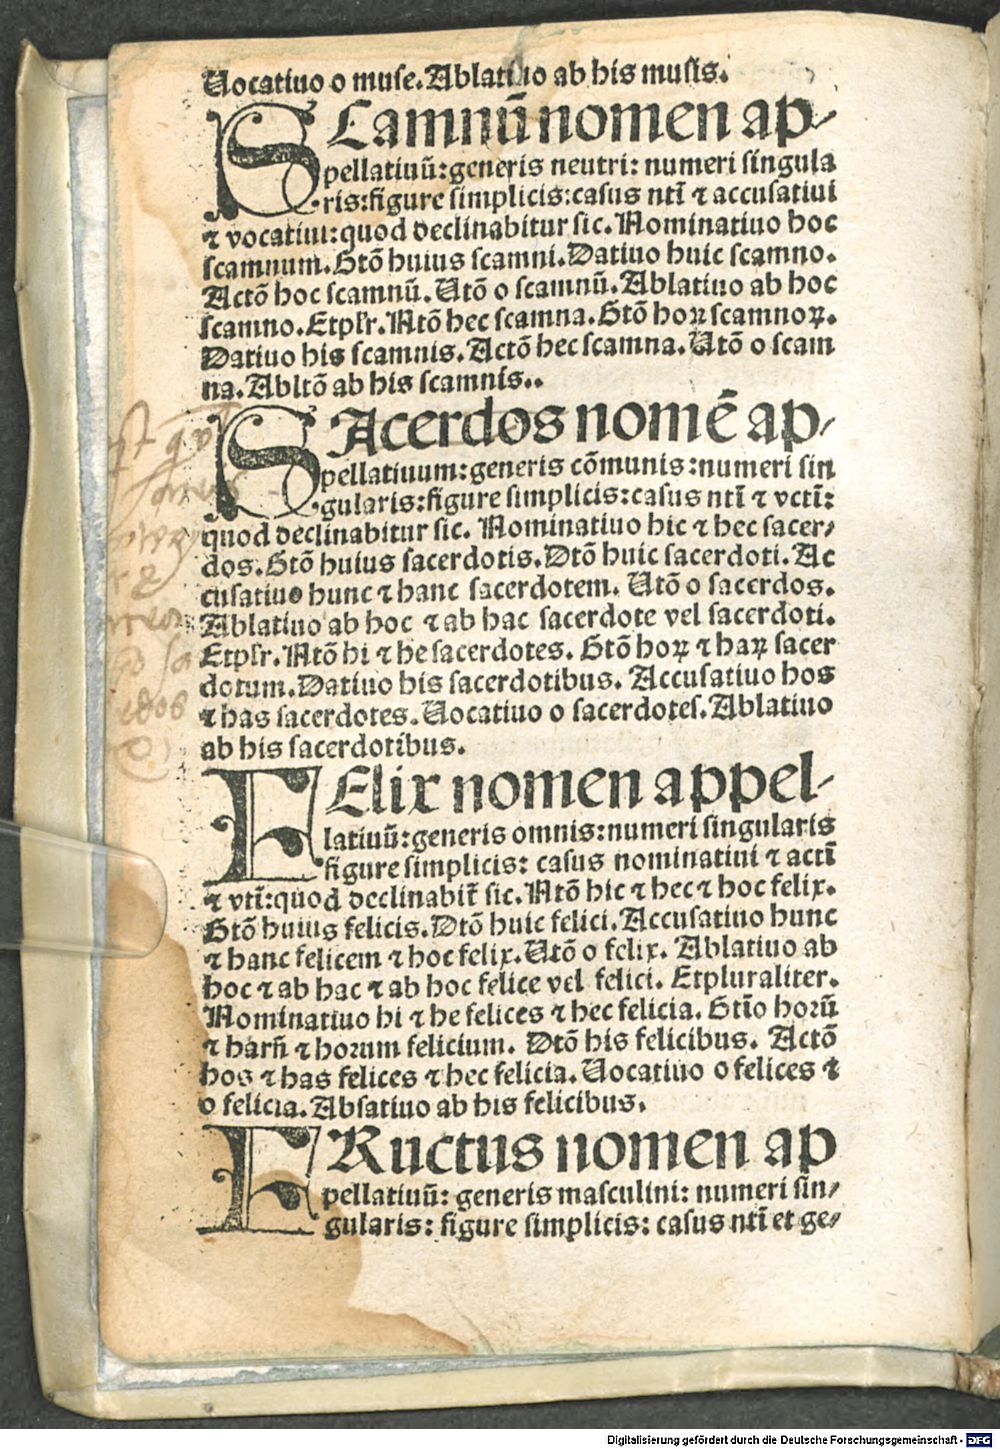 Uocatiuo o muse. Ablatiuo ab his musis.
SCamnū nomen ap⸗
pellatiuū: generis neutri: numeri singula
ris: figure simplicis: casus ntī ⁊ accusatiui
⁊ vocatiui: quod declinabitur sic. Nominatiuo hoc
scamnum. Gtō huius scamni. Datiuo huic scamno.
Actō hoc scamnū. Utō o scamnū. Ablatiuo ab hoc
scamno. Etplr. Ntō hec scamna. Gtō hoꝝ scamnoꝝ.
Datiuo his scamnis. Actō hec scamna. Utō o scam
na. Abltō ab his scamnis..
SAcerdos nomē ap⸗
pellatiuum: generis cōmunis: numeri sin
gularis: figure simplicis: casus ntī ⁊ vctī:
quod declinabitur sic. Nominatiuo hic ⁊ hec sacer⸗
dos. Gtō huius sacerdotis. Dtō huic sacerdoti. Ac
cusatiuo hunc ⁊ hanc sacerdotem. Utō o sacerdos.
Ablatiuo ab hoc ⁊ ab hac sacerdote vel sacerdoti.
Etplr. Ntō hi ⁊ he sacerdotes. Gtō hoꝝ ⁊ haꝝ sacer
dotum. Datiuo his sacerdotibus. Accusatiuo hos
⁊ has sacerdotes. Uocatiuo o sacerdotes. Ablatiuo
ab his sacerdotibus.
FElix nomen appel⸗
latiuū: generis omnis: numeri singularis
figure simplicis: casus nominatiui ⁊ actī
⁊ vtī: quod declinabit̄ sic. Ntō hic ⁊ hec ⁊ hoc felix.
Gtō huius felicis. Dtō huic felici. Accusatiuo hunc
⁊ hanc felicem ⁊ hoc felix. Utō o felix. Ablatiuo ab
hoc ⁊ ab hac ⁊ ab hoc felice vel felici. Etpluraliter.
Nominatiuo hi ⁊ he felices ⁊ hec felicia. Gtīo horū
⁊ harū ⁊ horum felicium. Dtō his felicibus. Actō
hos ⁊ has felices ⁊ hec felicia. Uocatiuo o felices ⁊
o felicia. Absatiuo ab his felicibus.
FRuctus nomen ap
pellatiuū: generis masculini: numeri sin⸗
gularis: figure simplicis: casus ntī et ge⸗
Digitalisierung gefördert durch die Deutsche Forschungsgemeinschaft - DFG